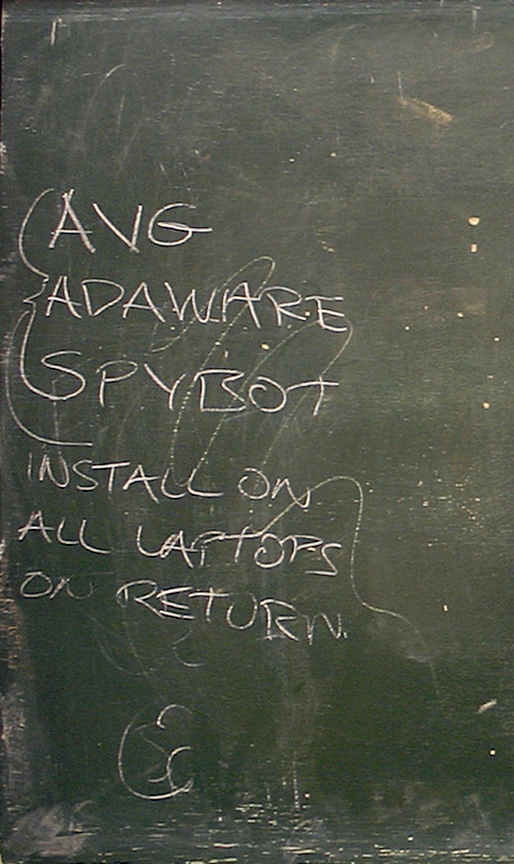 AVG
ADAWARE
SPYBOT
INSTALL ON
ALL LAPTOPS
ON RETURN.